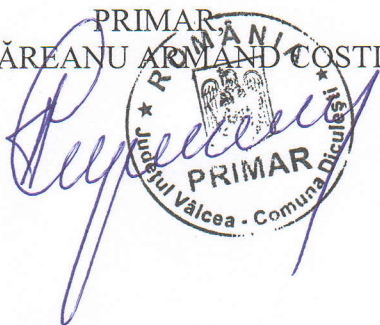 PRIMAR,
ĂREANU ARMAND COSTI
★ ROMÂNIA ★
PRIMAR
Județul Vâlcea - Comuna Diculești